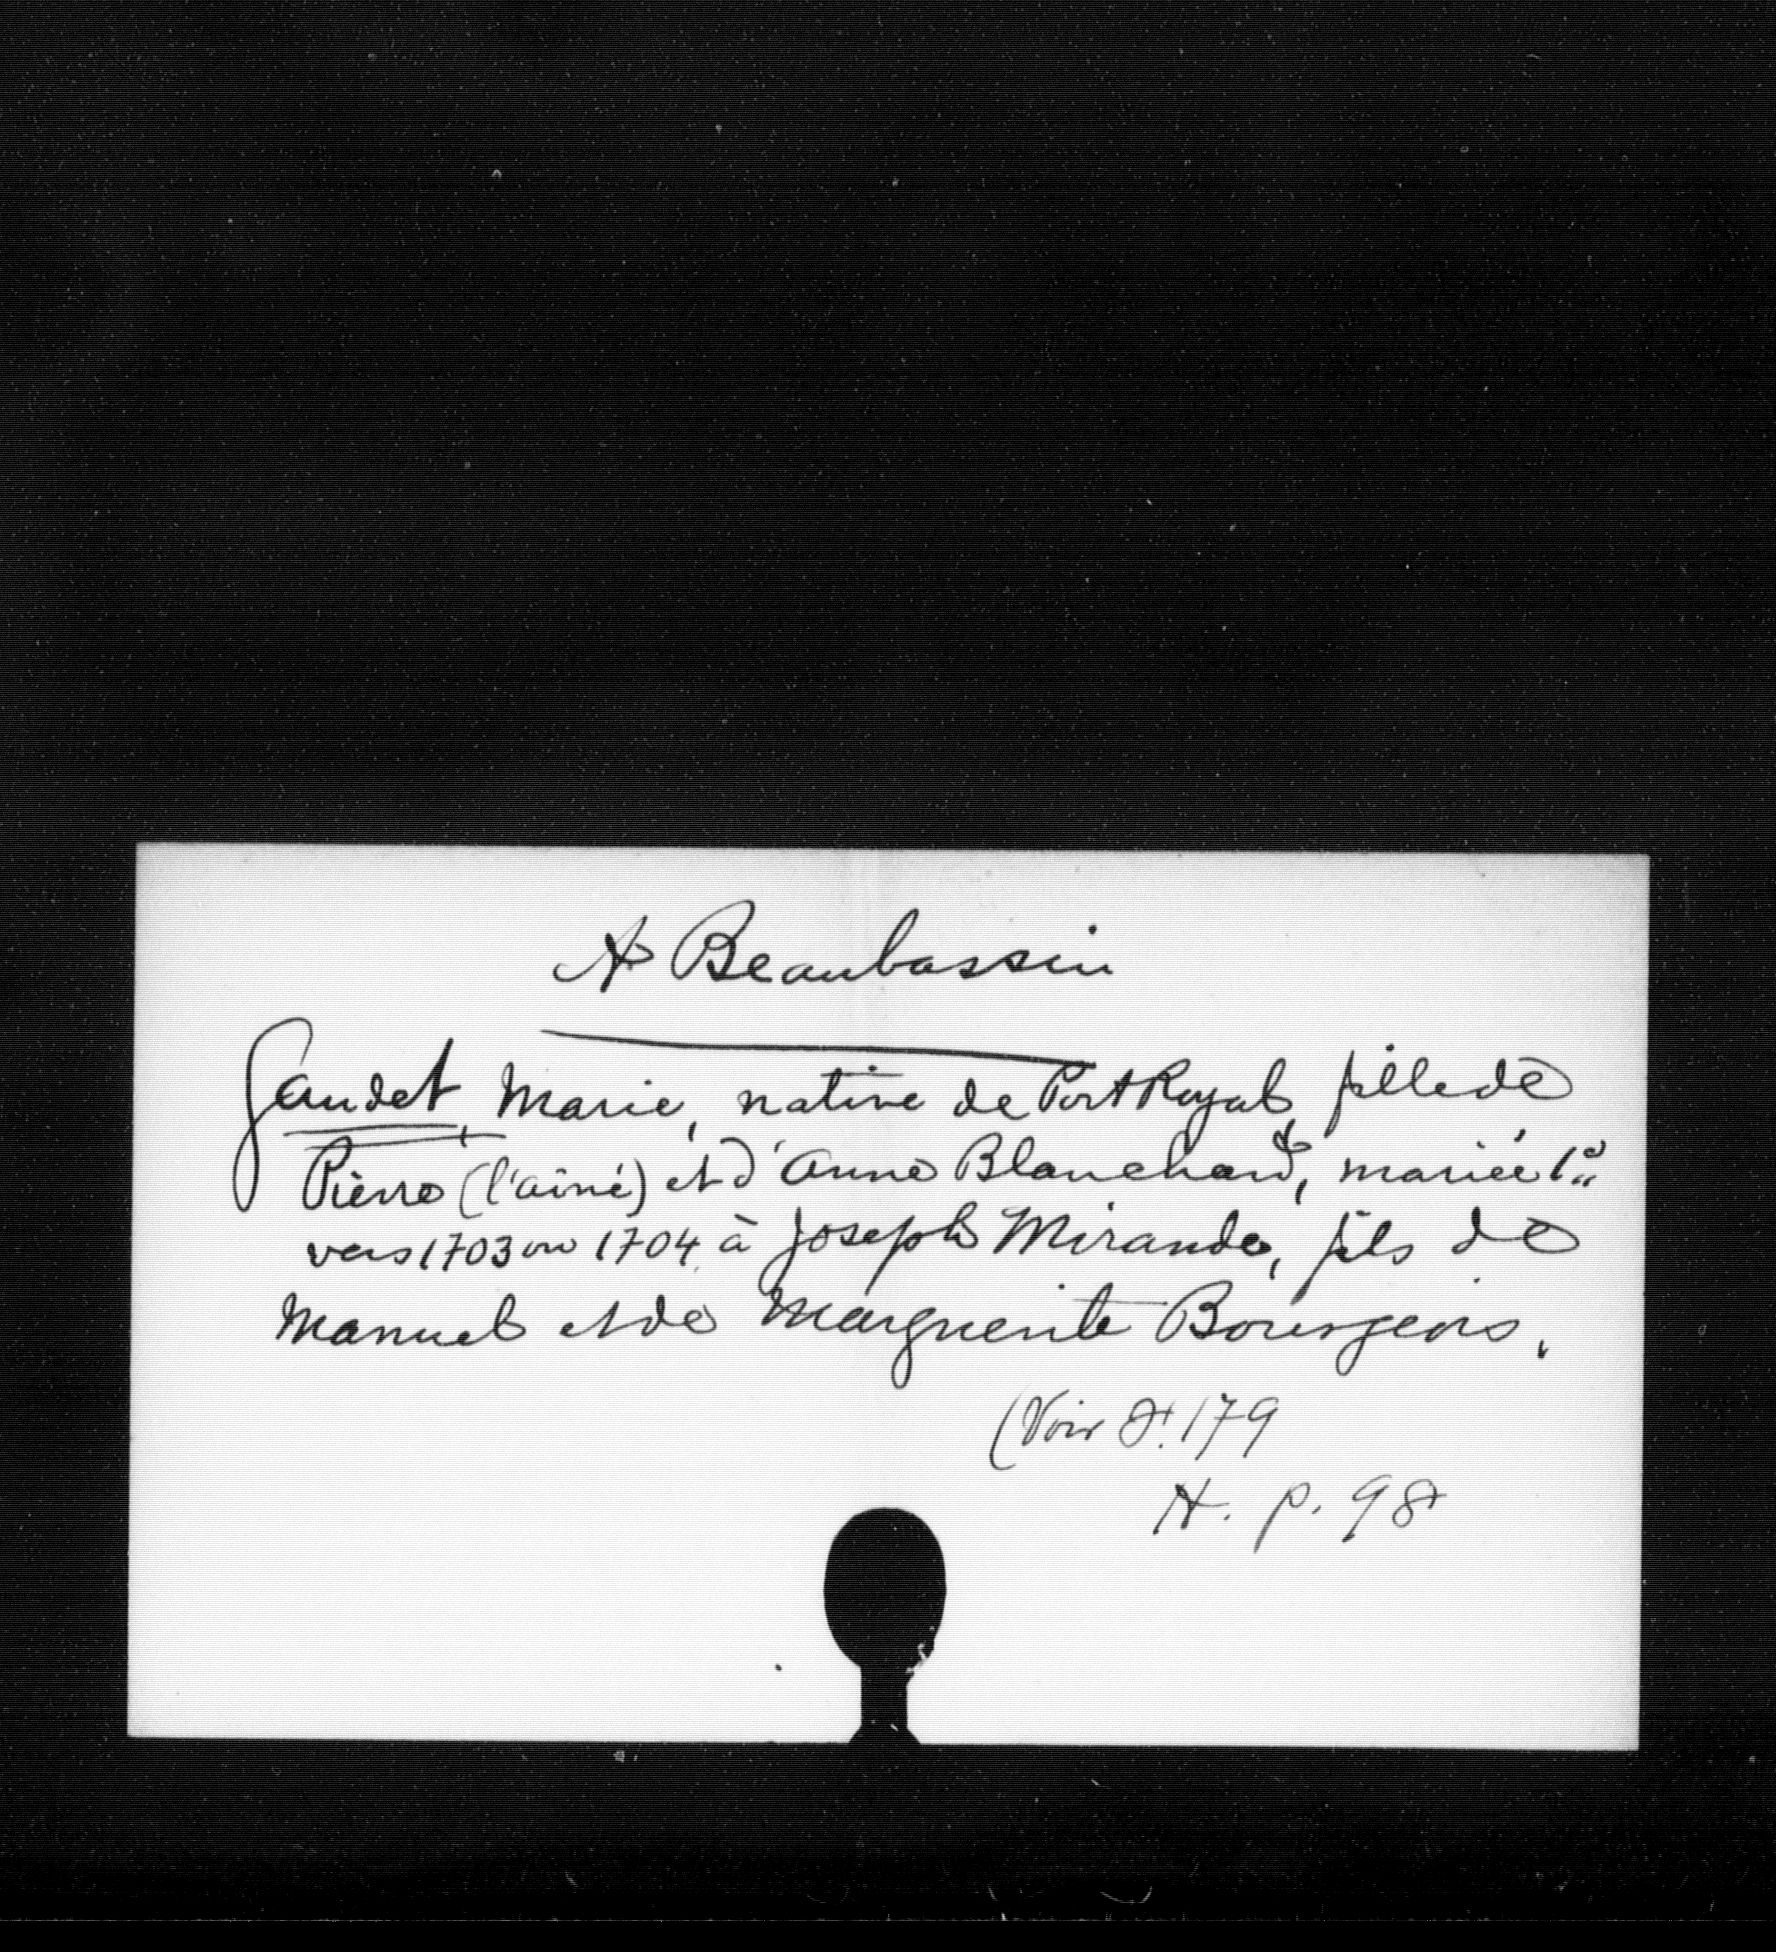 A Beaubassin
Gaudet, Marie, native de Port Royal, fille de
Pierre (l'ainé) et d'Anne Blanchard, mariée 1º
vers 1703 ou 1704 à Joseph Mirande, fils de
Manuel et de Marguerite Bourgeois.
(Voir 179
H. p. 98